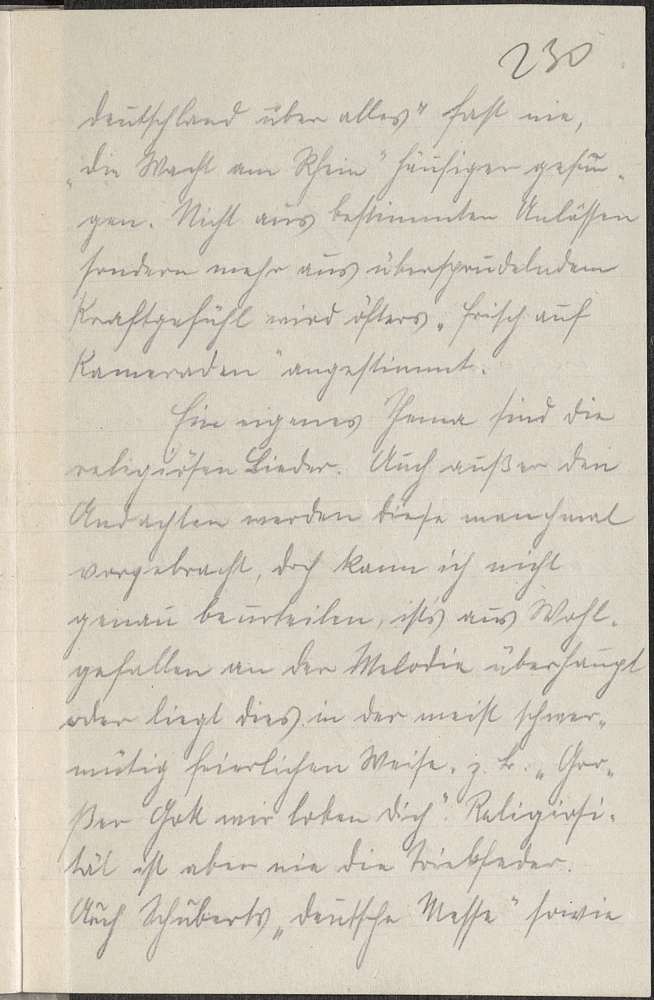 230
Deutschland über alles" fast nie,
„die Wacht am Rhein" häufiger gesun-
gen. Nicht aus bestimmten Anlässen
sondern mehr aus übersprudelndem
Kraftgefühl wird öfters „Frisch auf
Kameraden" angestimmt.
Ein eigenes Thema sind die
religiösen Lieder. Auch außer den
Andachten werden diese manchmal
vorgebracht, doch kann ich nicht
genau beurteilen, ists aus Wohl-
gefallen an der Melodie überhaupt
oder liegt dies in der meist schwer-
mütig feierlichen Weise, z. B. „Gro-
ßer Gott wir loben dich". Religiosi-
tät ist aber nie die Triebfeder.
Auch Schuberts „deutsche Messe" sowie